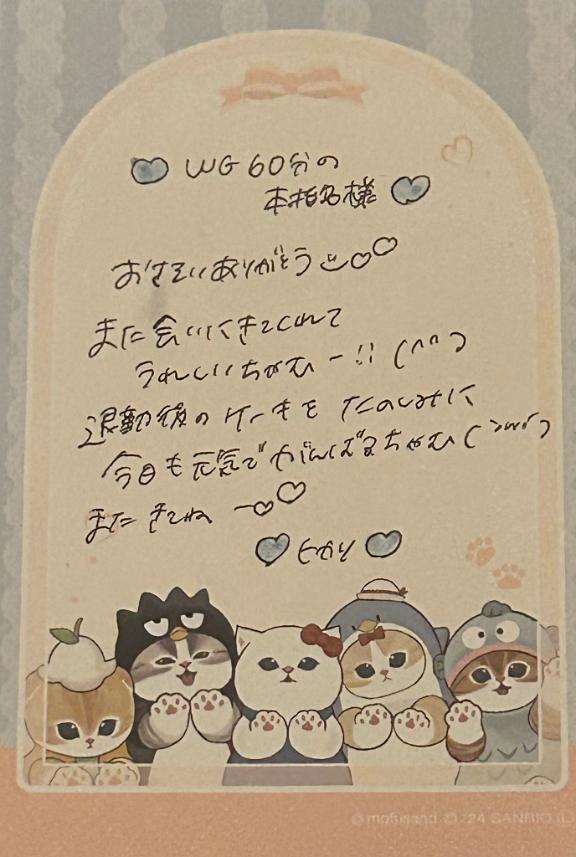 WG 60分の
本指名様
おさそいありがとう
また会いにきてくれて
うれしいちゃむー!! (^^ つ
退勤後のケーキをたのしみに
今日も元気でがんばるちゃむ(
また きてね ー
ヒカリ
© mofusand © '24 SANRIO